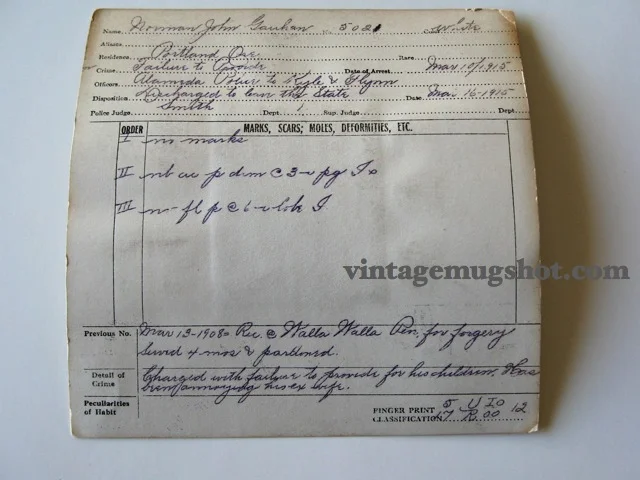 Name Norman John No. 5021 Color White
Alias
Residence Portland Ore. Race
Crime Failure to Provide Date of Arrest Mar 10/1915
Officers Alameda Police to Kyle & Flynn
Disposition Discharged to leave the State Date Mar 16-1915
Police Judge Smith Dept 1 Sup. Judge Dept.
ORDER MARKS, SCARS; MOLES, DEFORMITIES, ETC.
I no marks
II
III
vintagemugshot.com
Previous No. Mar 13-1908= Rec. @ Walla Walla Pen. for forgery
served 4 mos & pardoned.
Detail of Crime Charged with failure to provide for his children. Has
been annoying his ex wife.
Peculiarities of Habit
FINGER PRINT CLASSIFICATION 5 U IO 12
17 R OO